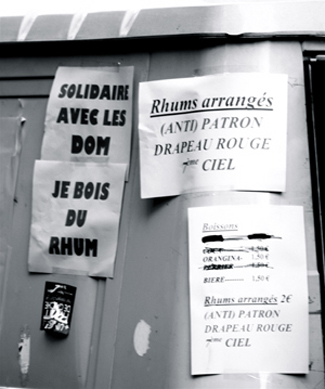 SOLIDAIRE
AVEC LES
DOM
JE BOIS
DU
RHUM
Rhums arrangés
(ANTI) PATRON
DRAPEAU ROUGE
7ème CIEL
Boissons
COCA 1,50€
ORANGINA- 1,50€
PERRIER
BIERE------ 1,50€
Rhums arrangés 2€
(ANTI) PATRON
DRAPEAU ROUGE
7ème CIEL